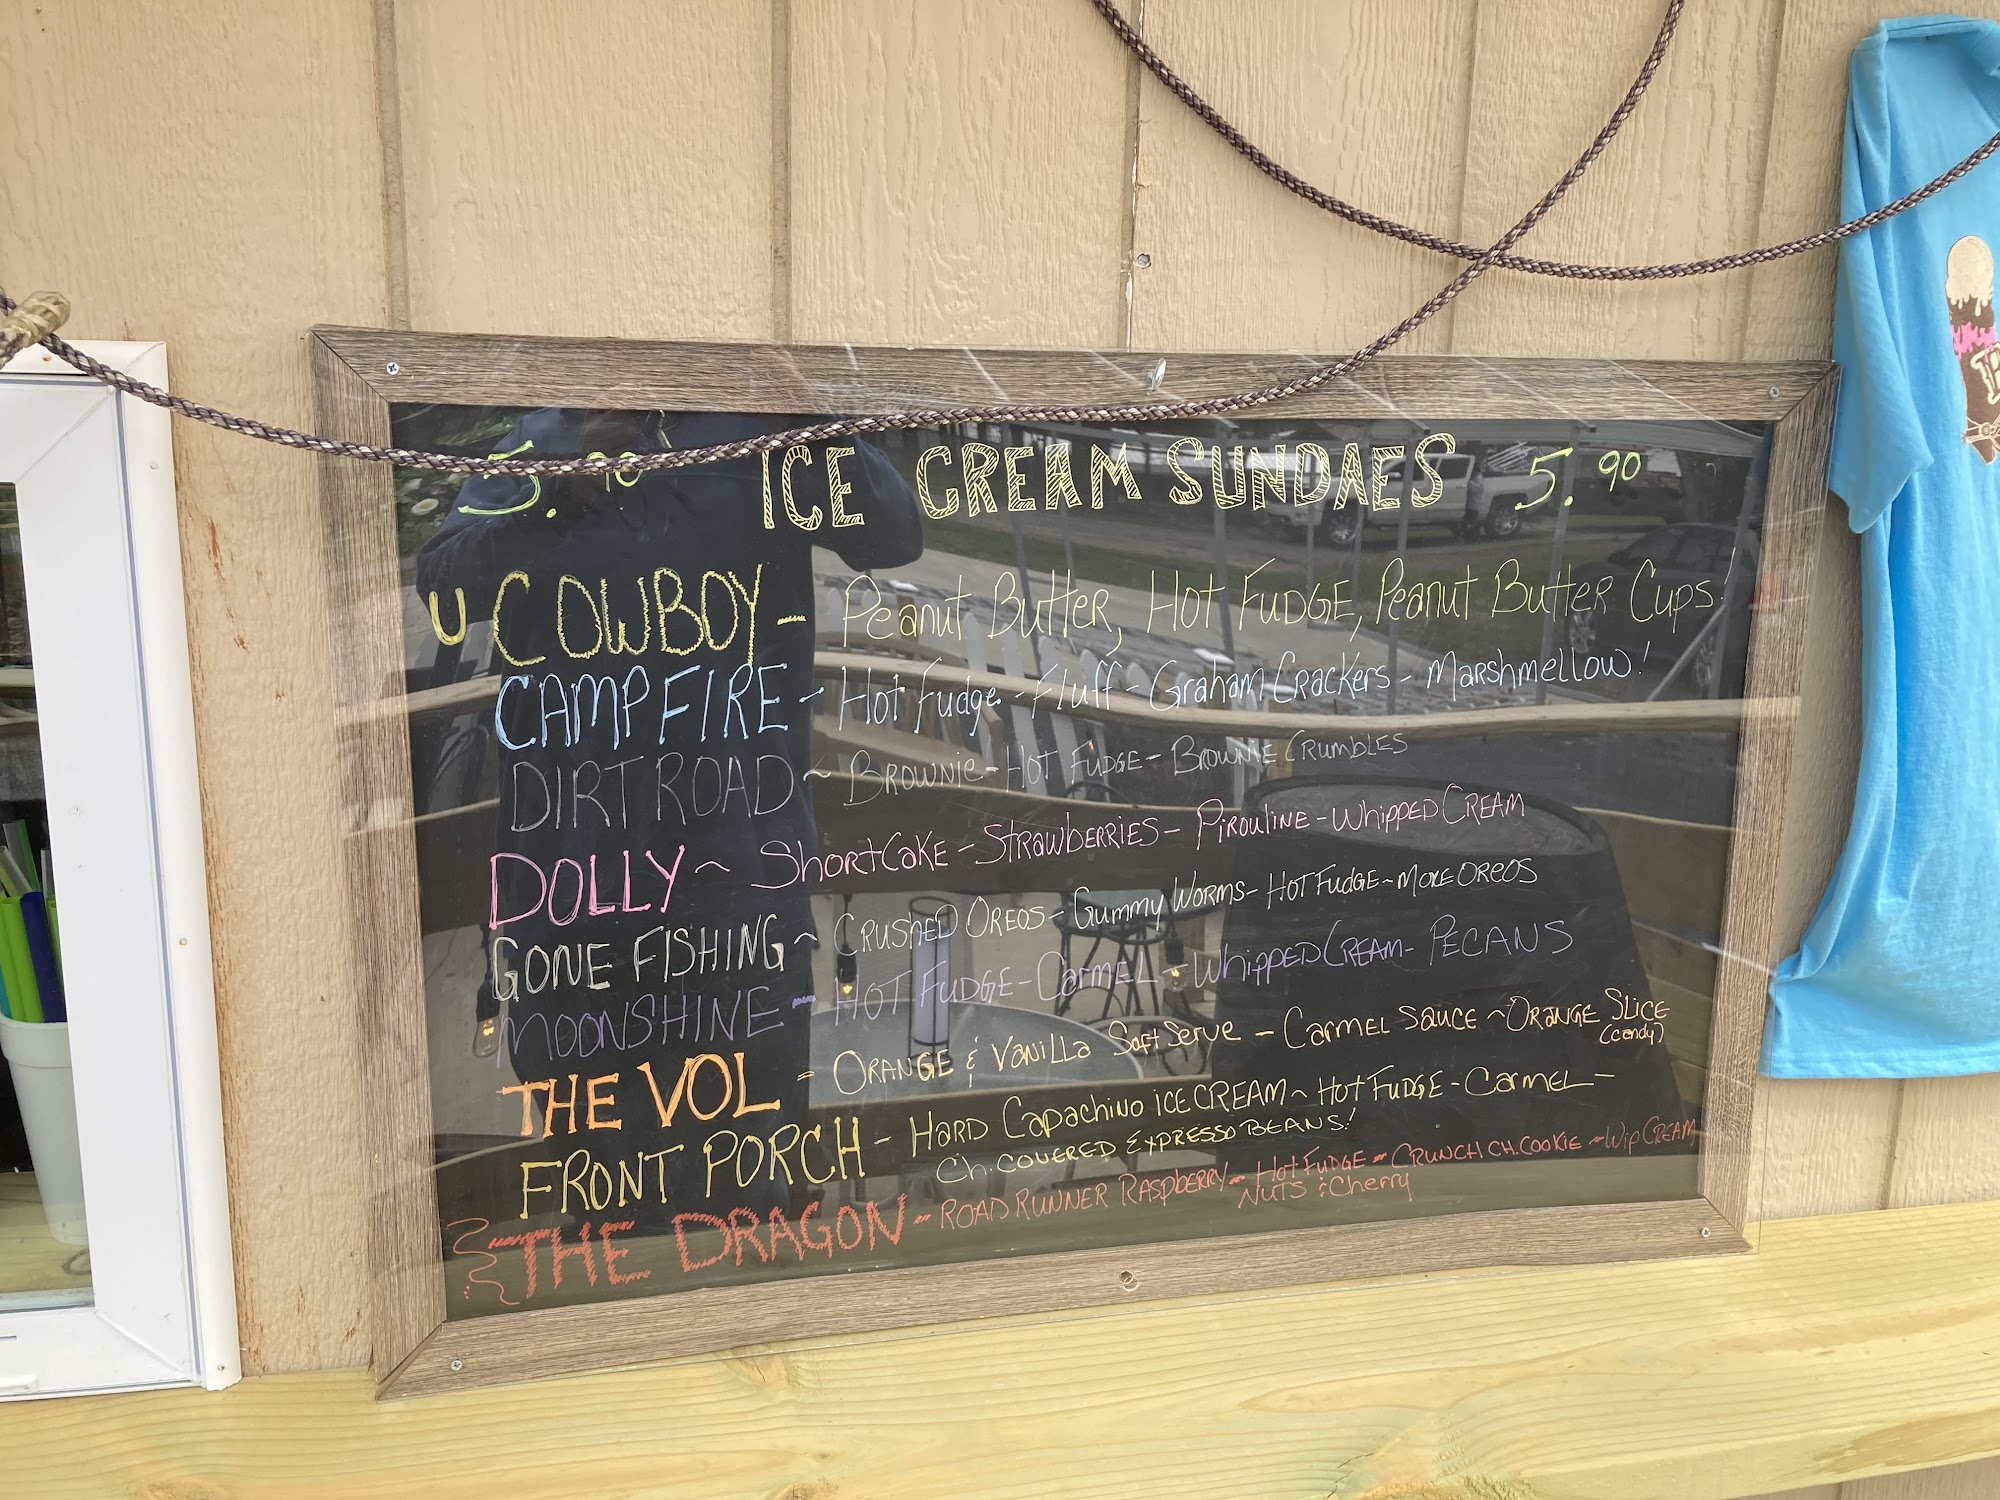 5.90 ICE CREAM SUNDAES 5.90
U COWBOY - Peanut Butter, Hot Fudge, Peanut Butter Cups!
CAMPFIRE - Hot Fudge - Fluff - Graham Crackers - Marshmellow!
DIRT ROAD ~ BROWNIE - HOT FUDGE - BROWNIE CRUMBLES
DOLLY ~ SHORTCAKE - STRAWBERRIES - PIROULINE - WHIPPED CREAM
GONE FISHING ~ CRUSHED OREOS - GUMMY WORMS - HOT FUDGE ~ MORE OREOS
MOONSHINE - HOT FUDGE - CARMEL - WHIPPED CREAM - PECANS
THE VOL - ORANGE & VANILLA SOFT SERVE - CARMEL SAUCE ~ ORANGE SLICE
(candy)
FRONT PORCH - HARD CAPACHINO ICE CREAM ~ HOT FUDGE - CARMEL -
CH. COVERED EXPRESSO BEANS!
THE DRAGON - ROAD RUNNER RASPBERRY - HOT FUDGE - CRUNCH CH. COOKIE ~ WIP CREAM
NUTS & Cherry